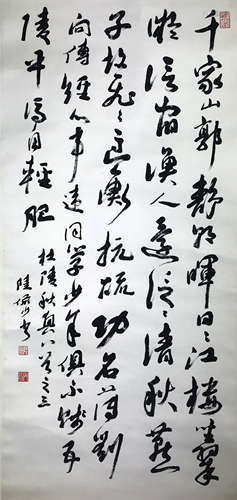 千家山郭靜朝暉日々江樓坐翠
微信宿漁人還泛々清秋燕
子故飛々匡衡抗疏功名薄劉
向傳經心事違同學少年俱不賤五
陵衣馬自輕肥
杜陵秋興八首之三
陸儼少書